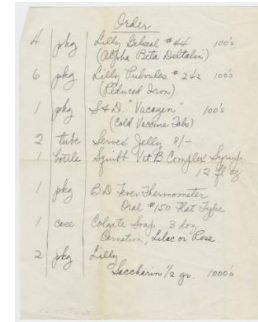 Order
4 pkg Lilly #44 100's
(Alpha Beta Deltalin)
6 pkg Lilly Pulvules #242 100's
(Reduced Iron)
1 pkg S&D. "Vacagen" 100's
(Cold Vaccine Tabs)
2 tube Jelly
1 bottle Squibb Vit B Complex Syrup
12 fl oz
1 pkg B.D. Fever Thermometer
Oral #150 Flat Type
1 case Colgate Soap 3 doz
Carnation, Lilac or Rose
2 pkg Lilly
Saccharin 1/2 gr. 1000's